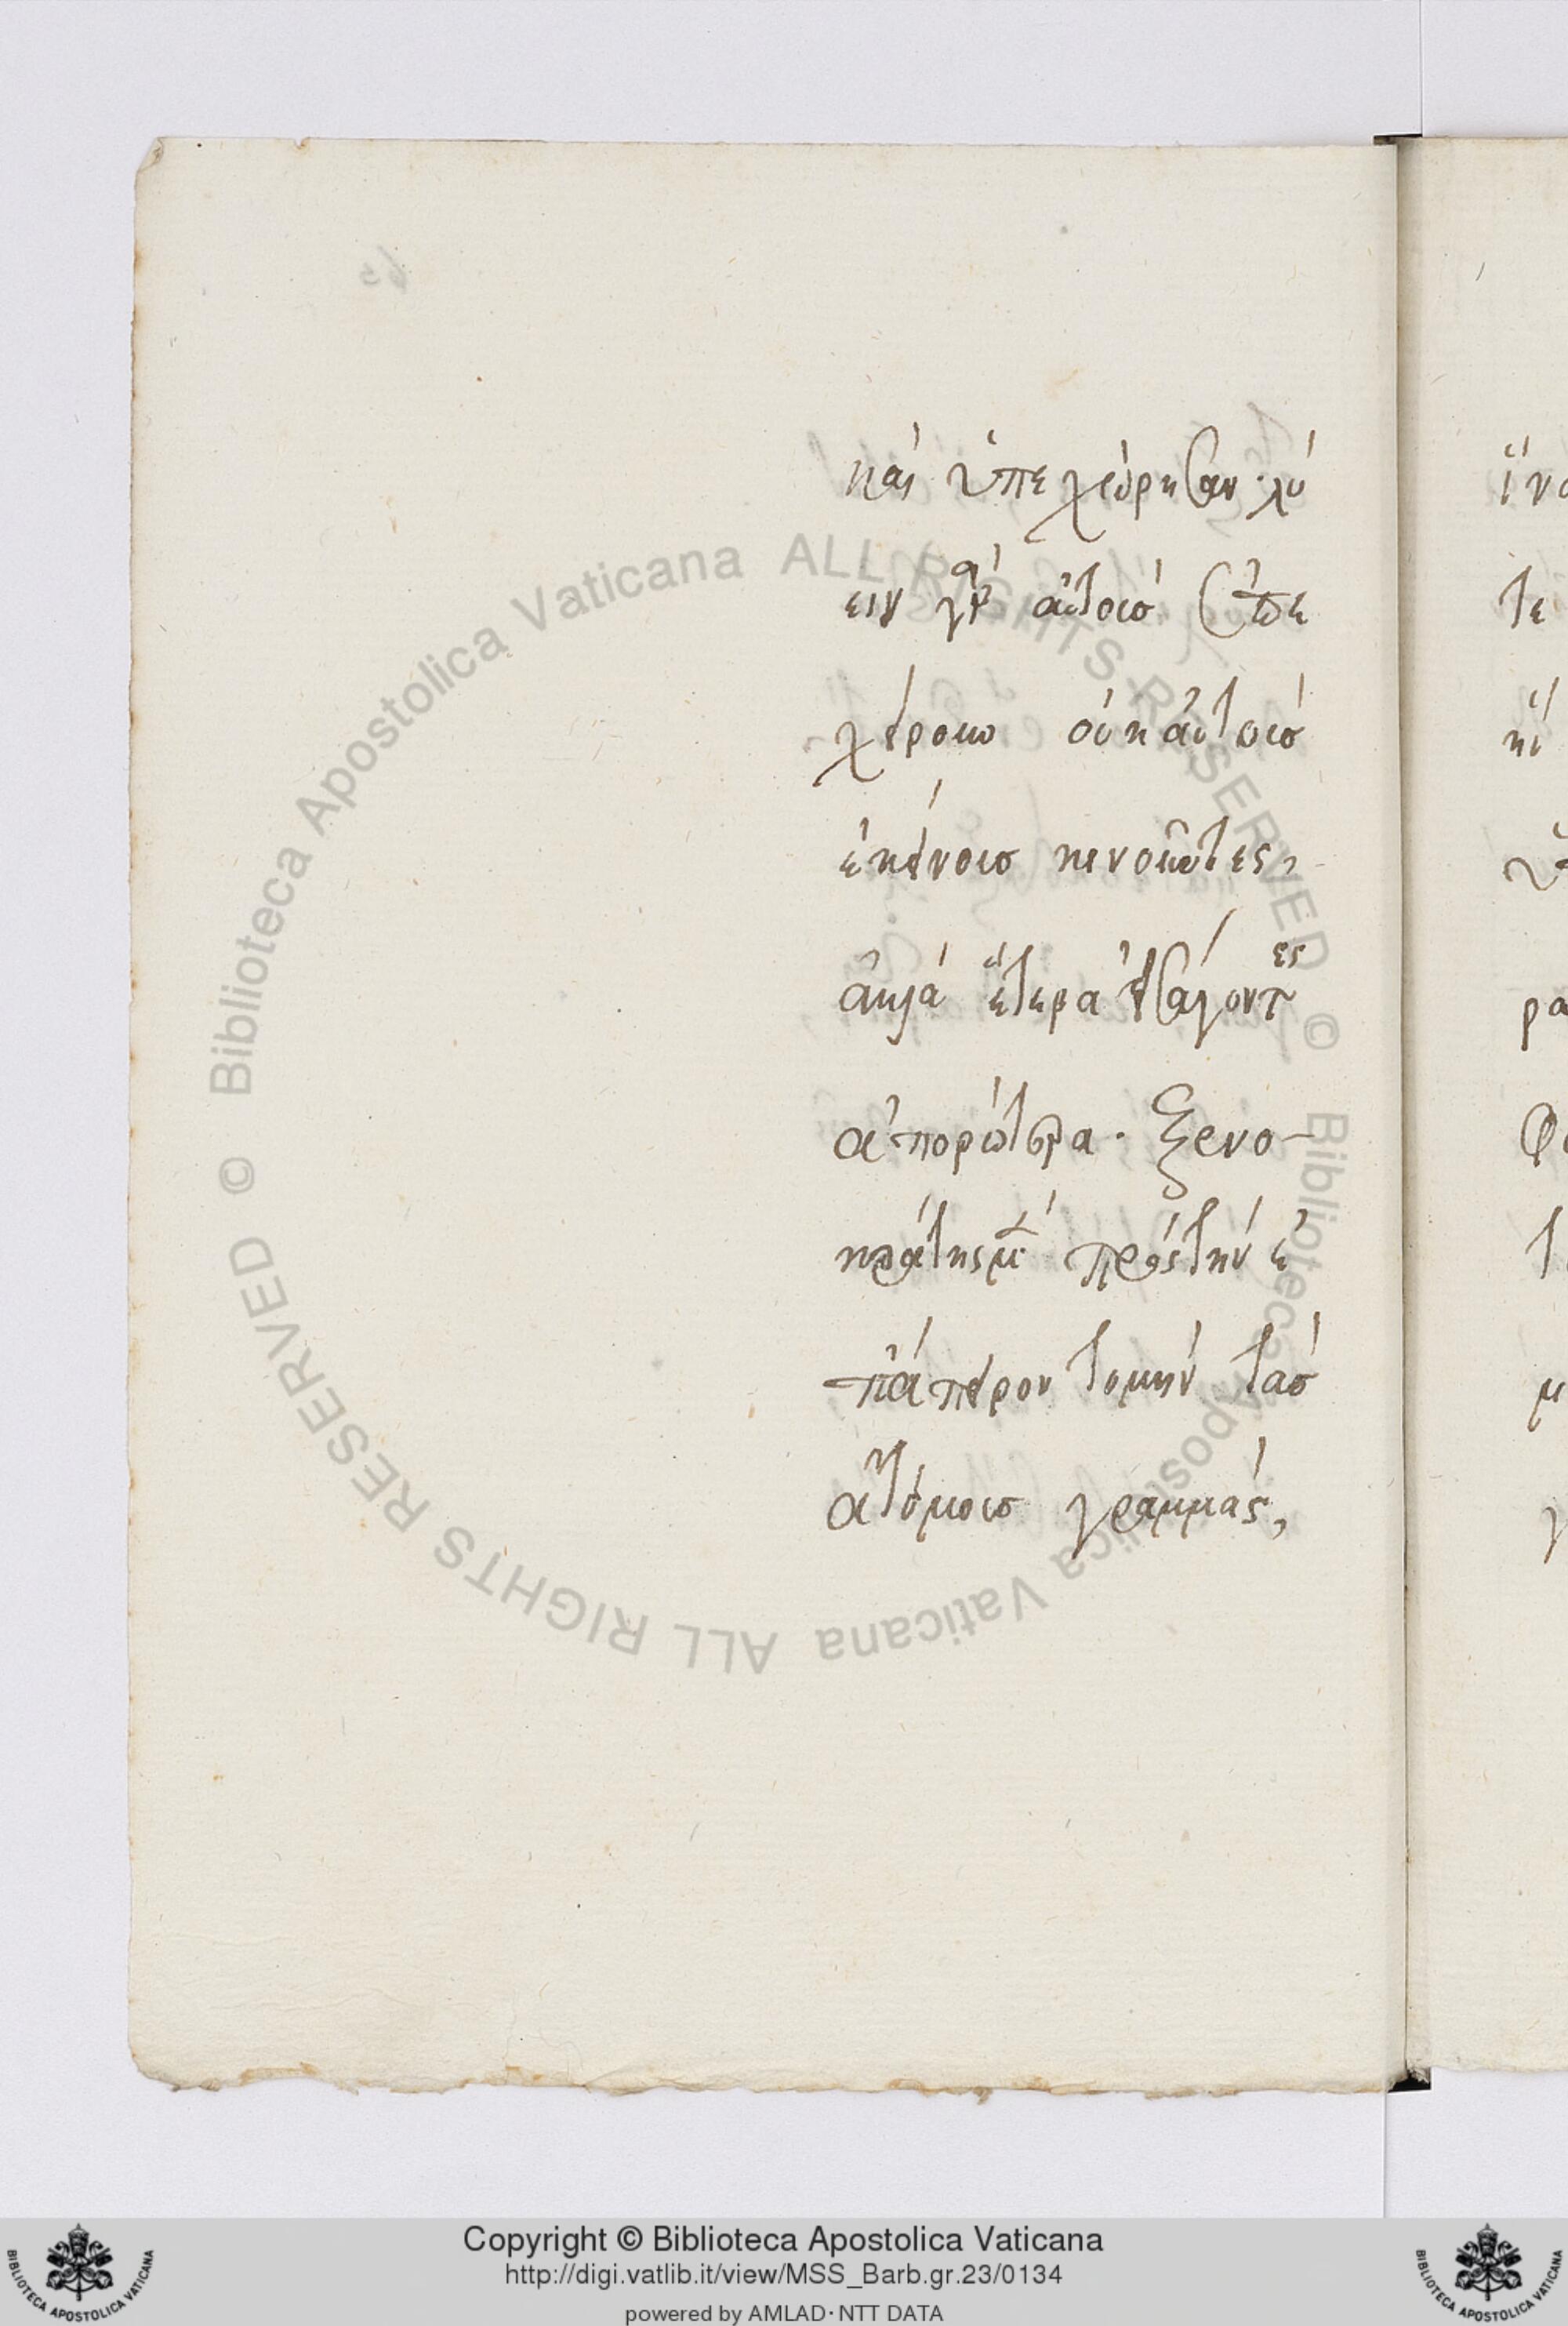 καὶ ὑπεχώρησαν· λύ
ειν γὰρ αὐτοὺς ἐπε
χείρουν οὐκ αὐτοὺς
ἐκείνους κινοῦντες,
ἀλλὰ ἕτερα εἰσάγοντες
ἀπορώτερα. ξενο-
κράτης μὲν πρὸς τὴν ἐ
π' ἄπειρον τομὴν τὰς
ἀτόμους γραμμάς,
ἵνα
τε
ρα
Biblioteca Apostolica Vaticana ALL RIGHTS RESERVED ©
Biblioteca Apostolica Vaticana ALL RIGHTS RESERVED ©
Copyright © Biblioteca Apostolica Vaticana
http://digi.vatlib.it/view/MSS_Barb.gr.23/0134
powered by AMLAD·NTT DATA
BIBLIOTECA APOSTOLICA VATICANA
BIBLIOTECA APOSTOLICA VATICANA